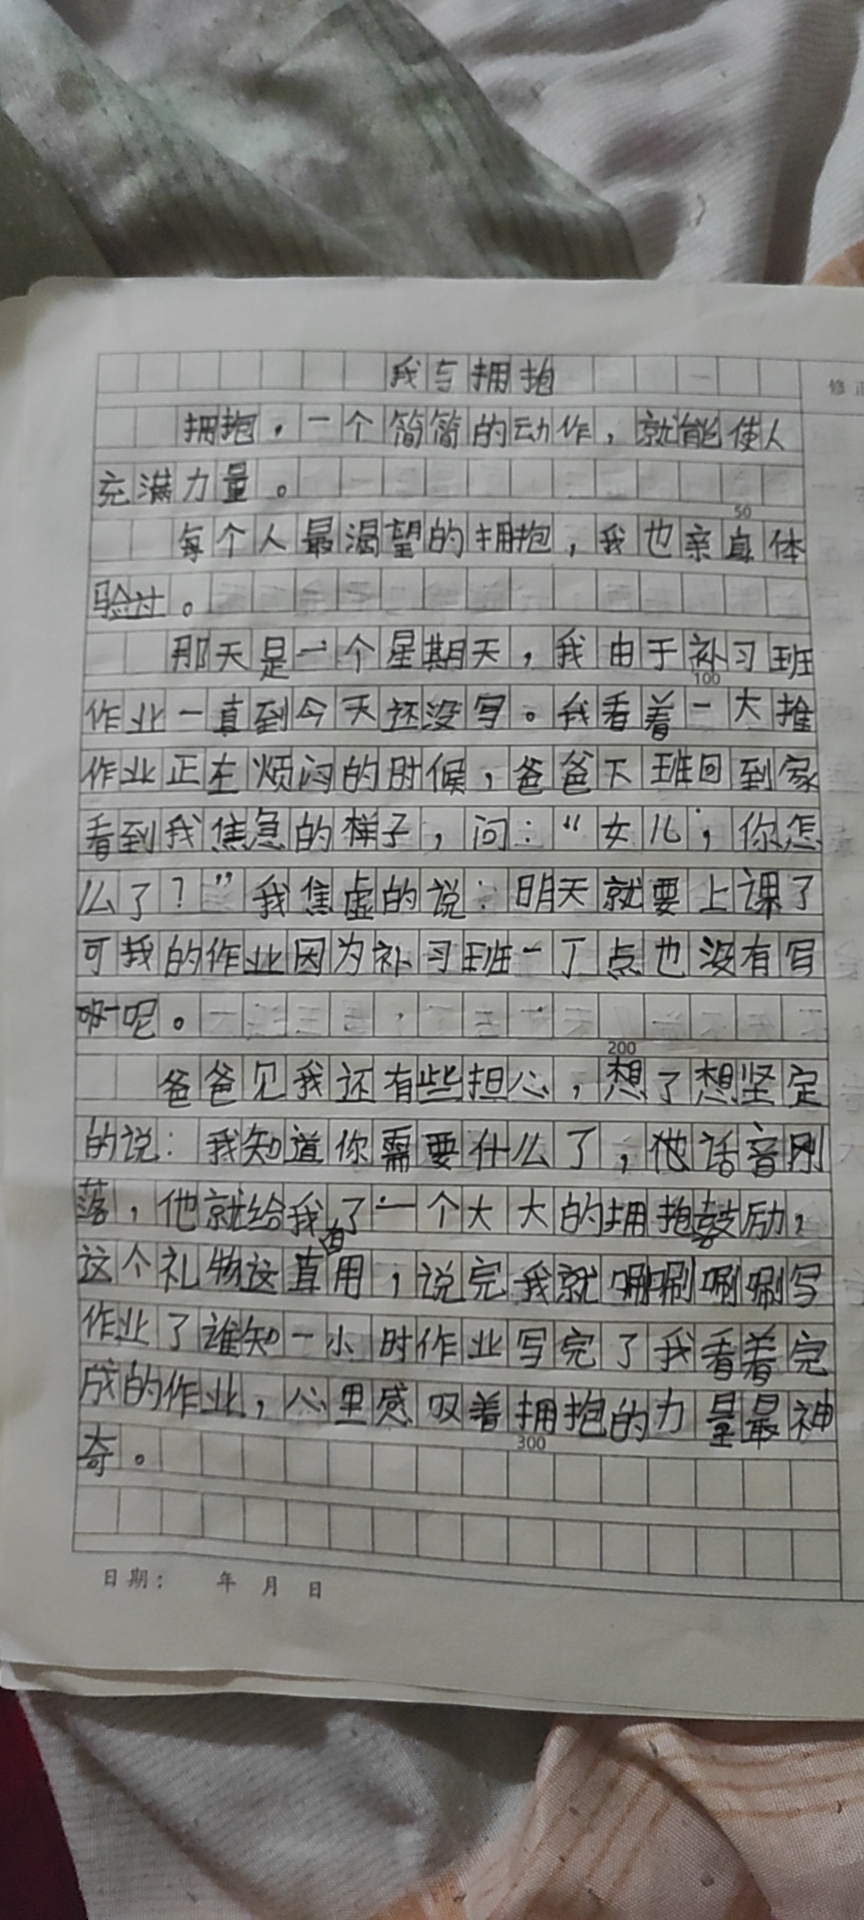 我与拥抱
修正
拥抱，一个简简的动作，就能使人
充满力量。
50
每个人最渴望的拥抱，我也亲身体
验过。
那天是一个星期天，我由于补习班
100
作业一直到今天还没写。我看着一大推
作业正在烦闷的时候，爸爸下班回到家
看到我焦急的样子，问：“女儿，你怎
么了？”我焦虚的说：明天就要上课了
可我的作业因为补习班一丁点也没有写
呢。
200
爸爸见我还有些担心，想了想坚定
的说：我知道你需要什么了，他话音刚
落，他就给我了一个大大的拥抱鼓励，
这个礼物这直有用，说完我就唰唰唰唰写
作业了谁知一小时作业写完了我看着完
成的作业，心里感叹着拥抱的力量最神
300
奇。
日期： 年 月 日